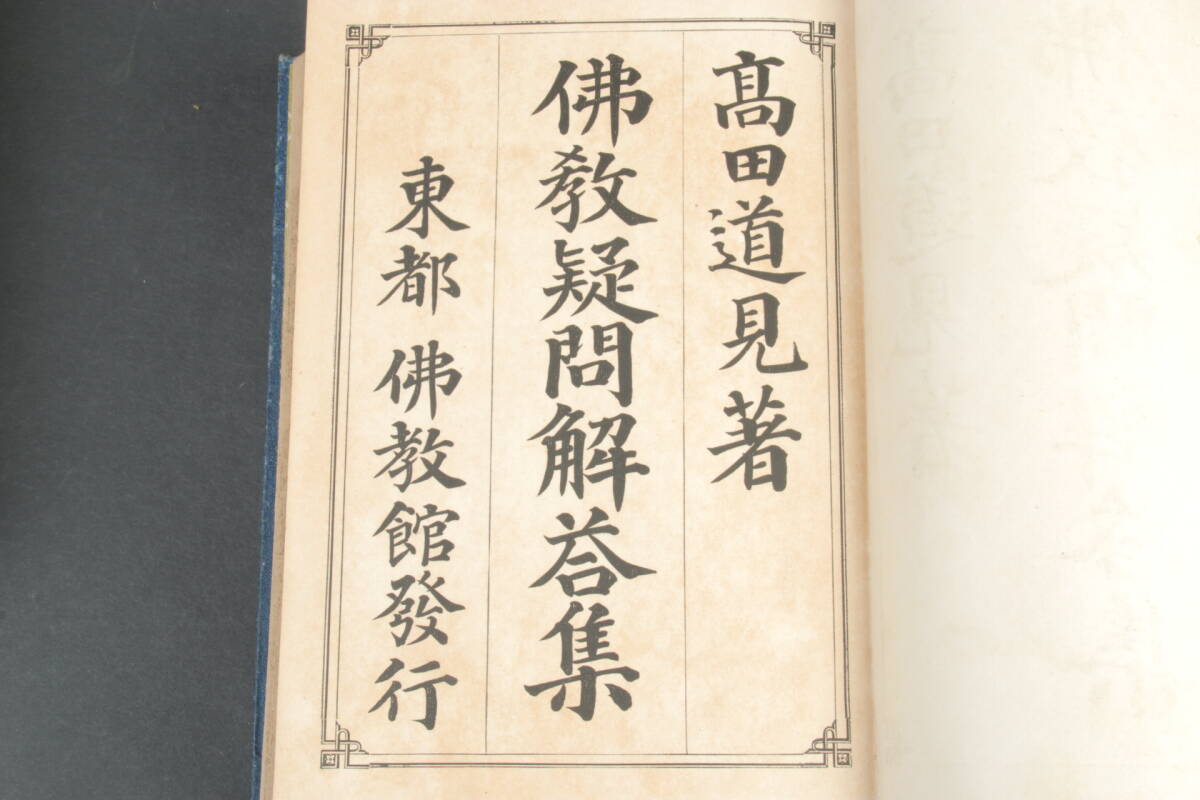 髙田道見著
佛教疑問解荅集
東都 佛教館發行